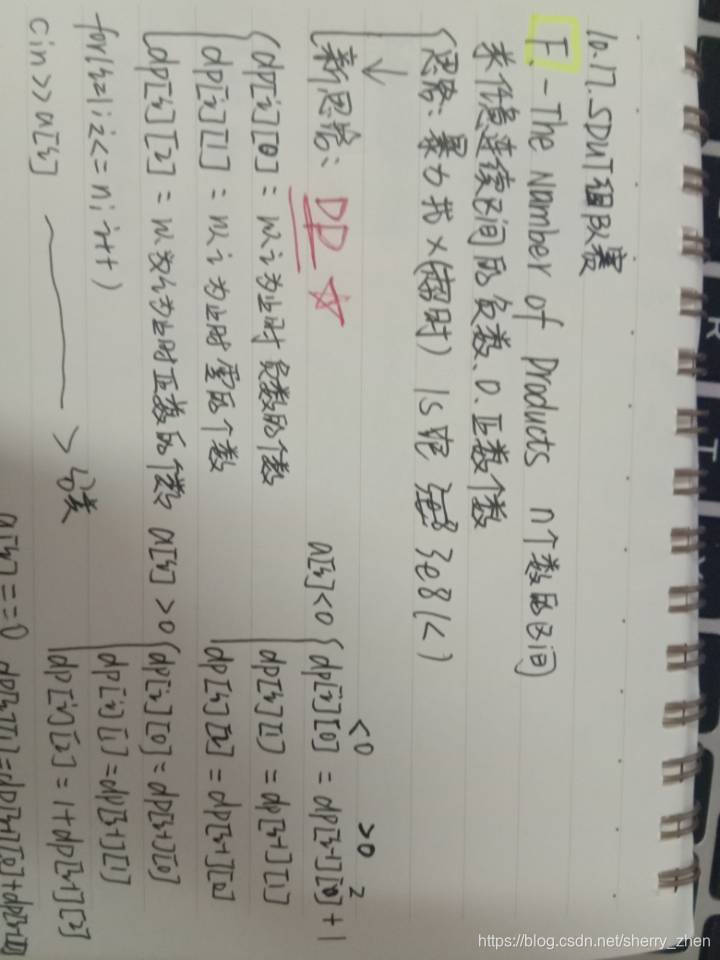 10.17. SDUT组队赛
F - The Number of Products n个数的区间
求任意连续区间的负数、0、正数个数
思路: 暴力找 × (超时) 1s 3e8 (<)
新思路: DP ☆
dp[i][0] = 以i为止时负数的个数
dp[i][1] = 以i为止时零的个数
dp[i][2] = 以i为止时正数的个数
for(i=1; i<=n; i++)
cin>>a[i] > 分类
<0 >0
a[i]<0 { dp[i][0] = dp[i-1][2] + 1
dp[i][1] = dp[i-1][1]
dp[i][2] = dp[i-1][0]
a[i] >0 { dp[i][0] = dp[i-1][0]
dp[i][1] = dp[i-1][1]
dp[i][2] = 1+dp[i-1][2]
a[i]==0 dp[i][1]=dp[i-1][0]+dp[i-1]
R
T
https://blog.csdn.net/sherry_zhen